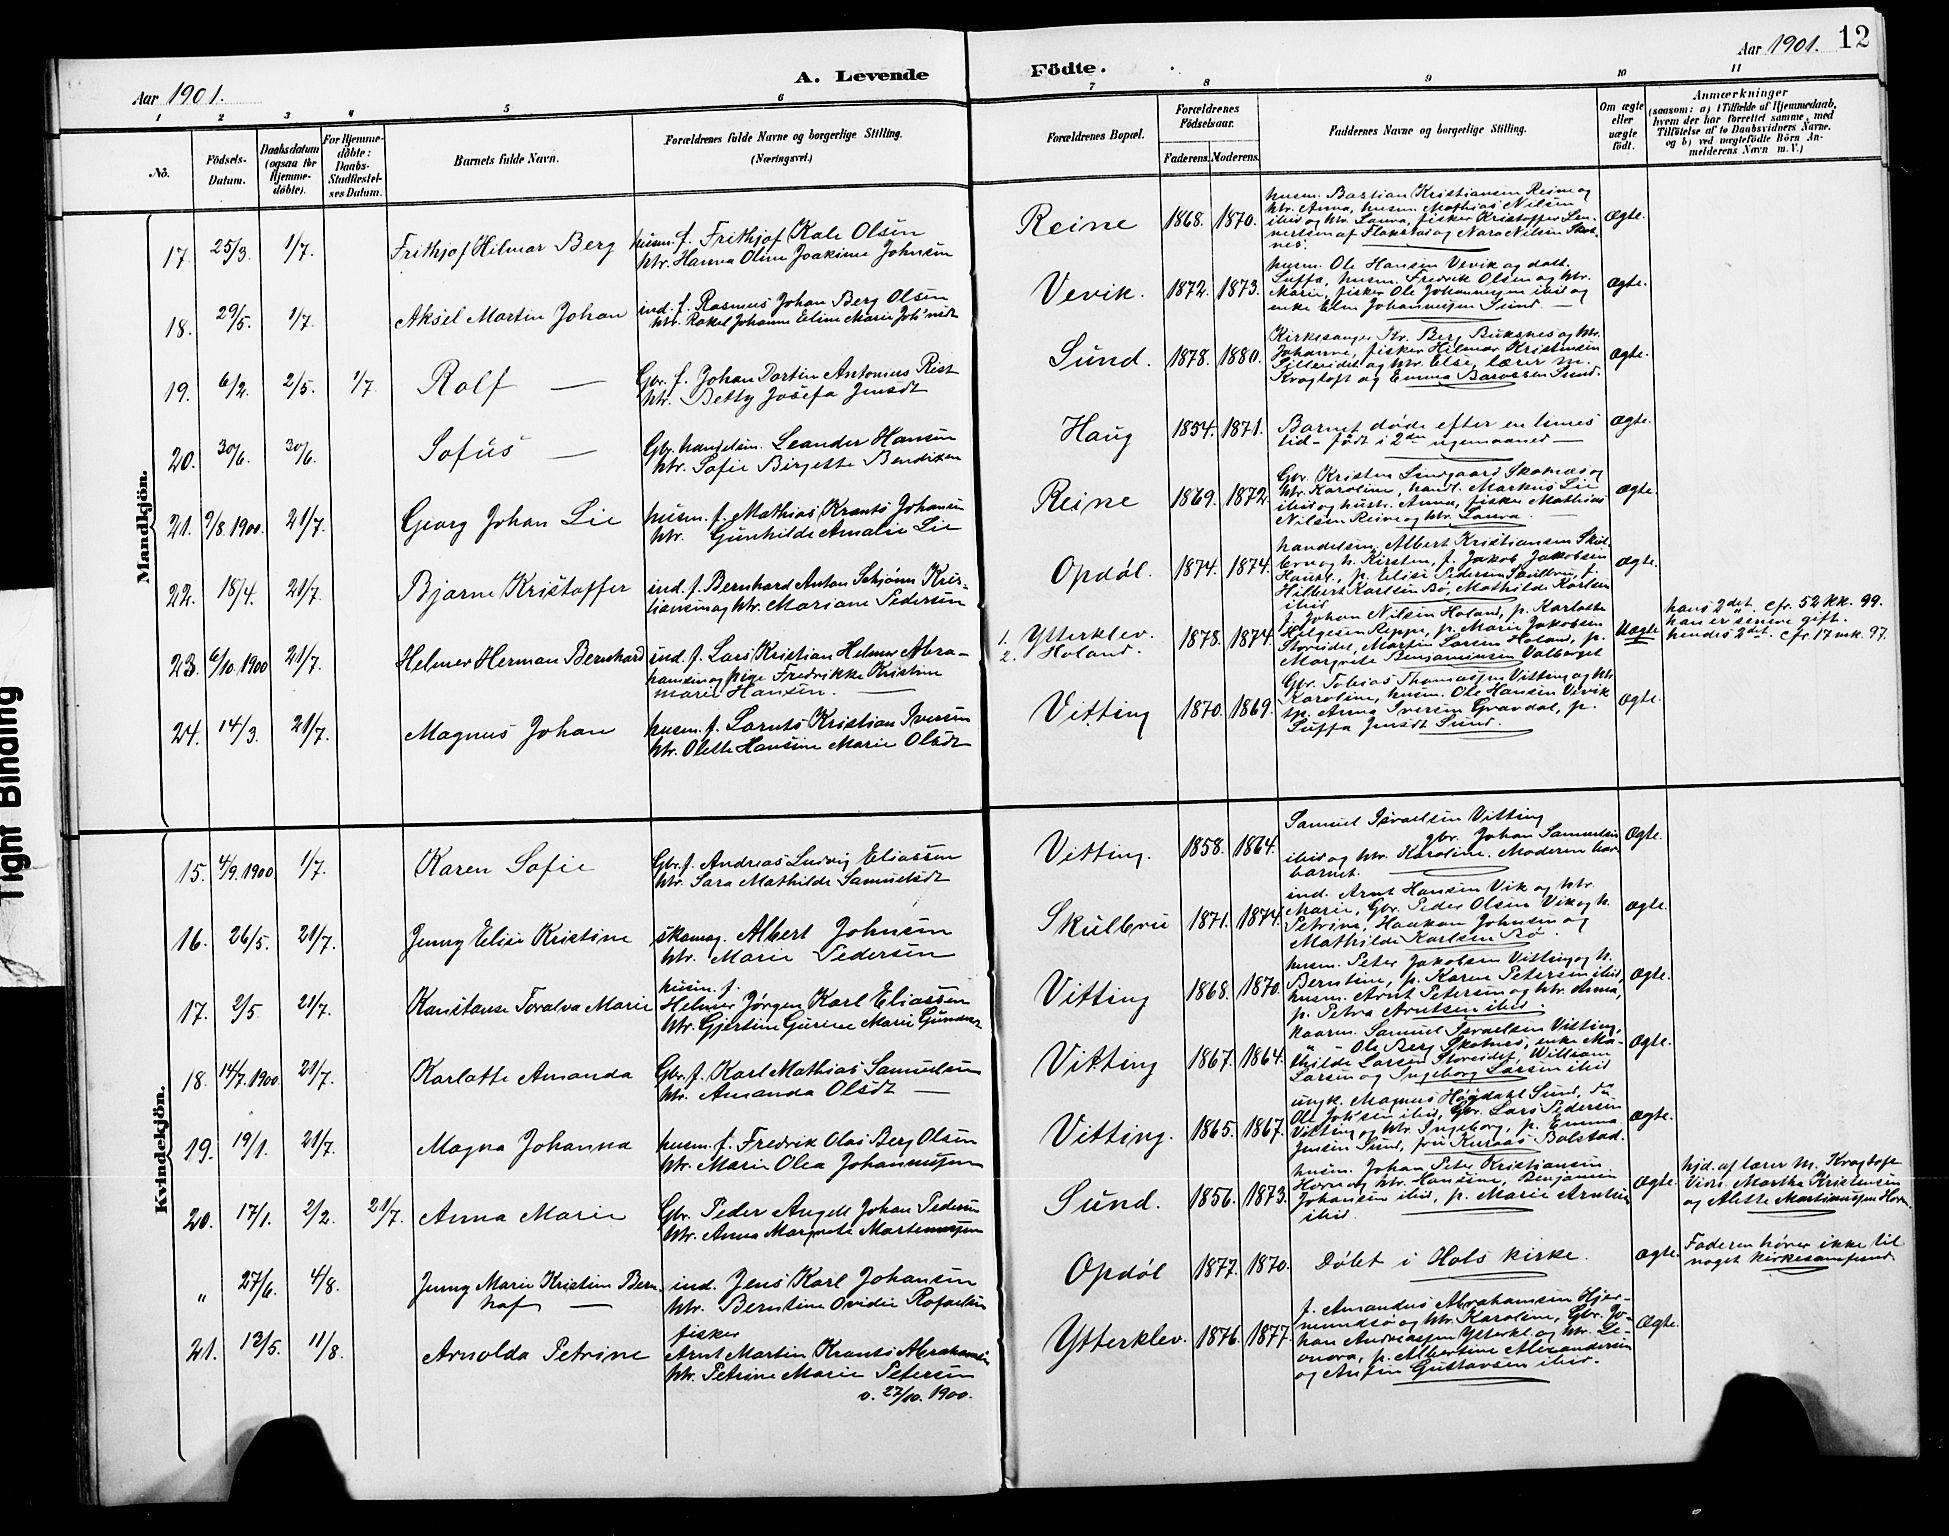 Aar 1901.
A. Levende
Födte.
Aar 1901. 12
1 2 3 4 5 6 7 8 9 10 11
No.
Födsels-
Datum.
Daabsdatum
(ogsaa for
Hjemme-
døbte).
For Hjemme-
døbte:
Daabs-
Stadfæstel-
ses Datum.
Barnets fulde Navn.
Forældrenes fulde Navne og borgerlige Stilling.
(Næringsvei.)
Forældrenes Bopæl.
Forældrenes
Fødselsaar.
Faderens. Moderens.
Faddernes Navne og borgerlige Stilling.
Om ægte
eller
uægte
født.
Anmærkninger
(saasom: a) i Tilfælde af Hjemmedaab,
hvem der har forrettet samme, med
Tilføielse af to Daabsvidners Navne,
og b) ved uægtefödte Börn An-
melderens Navn m. V.)
Mandkjön.
17. 25/3. 1/7. Frithjof Hilmar Berg
husm. f. Frithjof Kale Olsen
htr. Hanna Oline Joakime Johnsen
Reine 1868. 1870.
husm. Bastian Kristiansen Reine og
htr. Anna, husm. Mathias Nilsen
ibid og htr. Laura, fisker Kristoffer
af Flakstad og Nora Nilsen
Ægte.
18. 29/5. 1/7. Aksel Martin Johan
ind. f. Rasmus Johan Berg Olsen
htr. Rakel Johanne Eline Marie Joh'nsdt
Vevik. 1872. 1873.
husm. Ole Hansen Vevik og datt.
Luffa, husm. Fredrik Olsen og htr.
Marie, fisker Ole Johannesen ibid og
enke Elen Johannesen Sund.
Ægte.
19. 6/2. 2/5. 1/7. Rolf
Gbr. f. Johan Dortin Antonius Rist
htr. Betty Josefa Jensdt
Sund. 1878. 1880.
Kirkesanger Kr. Berg Buksnes og htr.
Johanne, fisker Hilmar Kristensen
og htr. Else, lærer M.
Kragtoft og Emma Sund.
Ægte.
20. 30/6. 30/6. Sofus
Gbr. handelsm. Leander Hansen
htr. Sofie Birgette Bendixen
Haug 1854. 1871.
Barnet døde efter en times
tid - født i 2den ugemaaned
Ægte.
21. 9/8. 1900. 21/7. Georg Johan Lie
husm. f. Mathias Krantz Johansen
htr. Gunhilde Amalie Lie
Reine 1869. 1872.
Gbr. Kristen Lindgaard og
htr. Karoline, handl. Markus Lie
ibid og hustr. Anna, fisker Mathias
Nilsen Reine og htr. Laura.
Ægte.
22. 18/4. 21/7. Bjarne Kristoffer
ind. f. Bernhard Anton Schjønn Kris-
tiansen og htr. Mariane Pedersen
Opdøl. 1874. 1874.
handelsm. Albert Kristiansen
og h. Kirsten, f. Jakob Jakobsen
Haug, p. Elise Pedersen Skulbru, f.
Hilbert Karlsen Bø, Mathilde Karlsen
ibid
Ægte.
23. 6/10. 1900 21/7. Helmer Herman Bernhard
ind. f. Lars Kristian Helmer Abra-
hamsen og pige Fredrikke Kristine
Marie Hansen.
1. Ytterklev.
2. Holand. 1878. 1874.
f. Johan Nilsen Holand, p. Karlotte
Helgesen Reppe, p. Marie Jakobsen
Storeidet, Martin Larsen Holand, p.
Margrete Benjaminsen Valberget
Uægte
hans 2det. cfr. 52 kk. 99.
han er senere gift.
hendes 2det. cfr. 17 mk. 97.
24. 14/3. 21/7. Magnus Johan
husm. f. Lornts Kristian Iversen
htr. Olette Hansine Marie Olsdt
Vitting 1870. 1869.
Gbr. Tobias Thomassen Vitting og htr.
Karoline, husm. Ole Hansen Vevik
Anna Iversen Gravdal, p.
Luffa Jensdt Sund.
Ægte.
Kvindekjön.
15. 4/9. 1900. 1/7. Karen Sofie
Gbr. f. Andreas Ludvig Eliassen
htr. Sara Mathilde Samuelsdt
Vitting. 1858. 1864.
Samuel Israelsen Vitting
gbr. Johan Samuelsen
ibid og htr. Karoline. Moderen bar
barnet.
Ægte.
16. 26/5. 21/7. Jenny Elise Kristine
skomag. Albert Johnsen
htr. Marie Pedersen
Skulbru 1871. 1874.
ind. Arnt Hansen Vik og htr.
Marie, Gbr. Peder Olsen Vik og h.
Petrine, Haakon Johnsen og
Mathilde Karlsen Bø.
Ægte.
17. 2/5. 21/7. Konstanse Toralva Marie
husm. f.
Helmer Jørgen Karl Eliassen
htr. Gjertine Gurine Marie
Vitting 1868. 1870.
husm. Peter Jakobsen Vitting og h.
Berntine, p. Karen Petersen ibid,
husm. Arnt Petersen og htr. Anna,
p. Petra Arntsen ibid.
Ægte.
18. 14/7. 1900. 21/7. Karlotte Amanda
Gbr. f. Karl Mathias Samuelsen
htr. Amanda Olsdt
Vitting 1867. 1864.
kaarm. Samuel Israelsen Vitting,
" Ole Berg Skotnes, enke Ma-
thilde Larsen Storeidet, William
Larsen og Ingeborg Larsen ibid
Ægte.
19. 19/1. 21/7. Magna Johanna
husm. f. Fredrik Olai Berg Olsen
htr. Marie Olea Johannesen
Vitting. 1865. 1867.
ungk. Magnus Høydahl Sund,
Ole Joh'sen ibid, Gbr. Lars Pedersen
Vitting og htr. Ingeborg, p. Emma
Jensen Sund, fru Kuraas Bolstad.
Ægte.
20. 17/1. 2/2. 21/7. Anna Marie
Gbr. Peder Angell Johan Pedersen
htr. Anna Margrete Martinussen
Sund. 1856. 1873.
husm. Johan Peter Kristiansen
Horn og htr. Hansine, Benjamin
Johansen ibid, p. Marie Arntsen
ibid.
Ægte.
hjd. af lærer M. Kragtoft
Vidn. Martha Kristensen
og Alette Martinussen Horn.
" 27/6. 4/8. Jenny Marie Kristine Bern-
hof
ind. Jens Karl Johansen
htr. Berntine Ovidie Rafaelsen
Opdøl 1877. 1870.
Døbt i Hols kirke.
Ægte.
Faderen hører ikke til
noget kirkesamfund.
21. 13/5. 11/8. Arnolda Petrine
fisker
Arnt Martin Krants Abrahamsen
htr. Petrine Marie Petersen
v. 27/10. 1900.
Ytterklev. 1876. 1877.
f. Amandus Abrahamsen Hjer-
mundsø og htr. Karoline, Gbr. Jo-
han Andreassen Ytterkl. og htr. Le-
onora, p. Albertine Alexandersen
og Anfin Gustavsen ibid.
Ægte.
Tight Binding